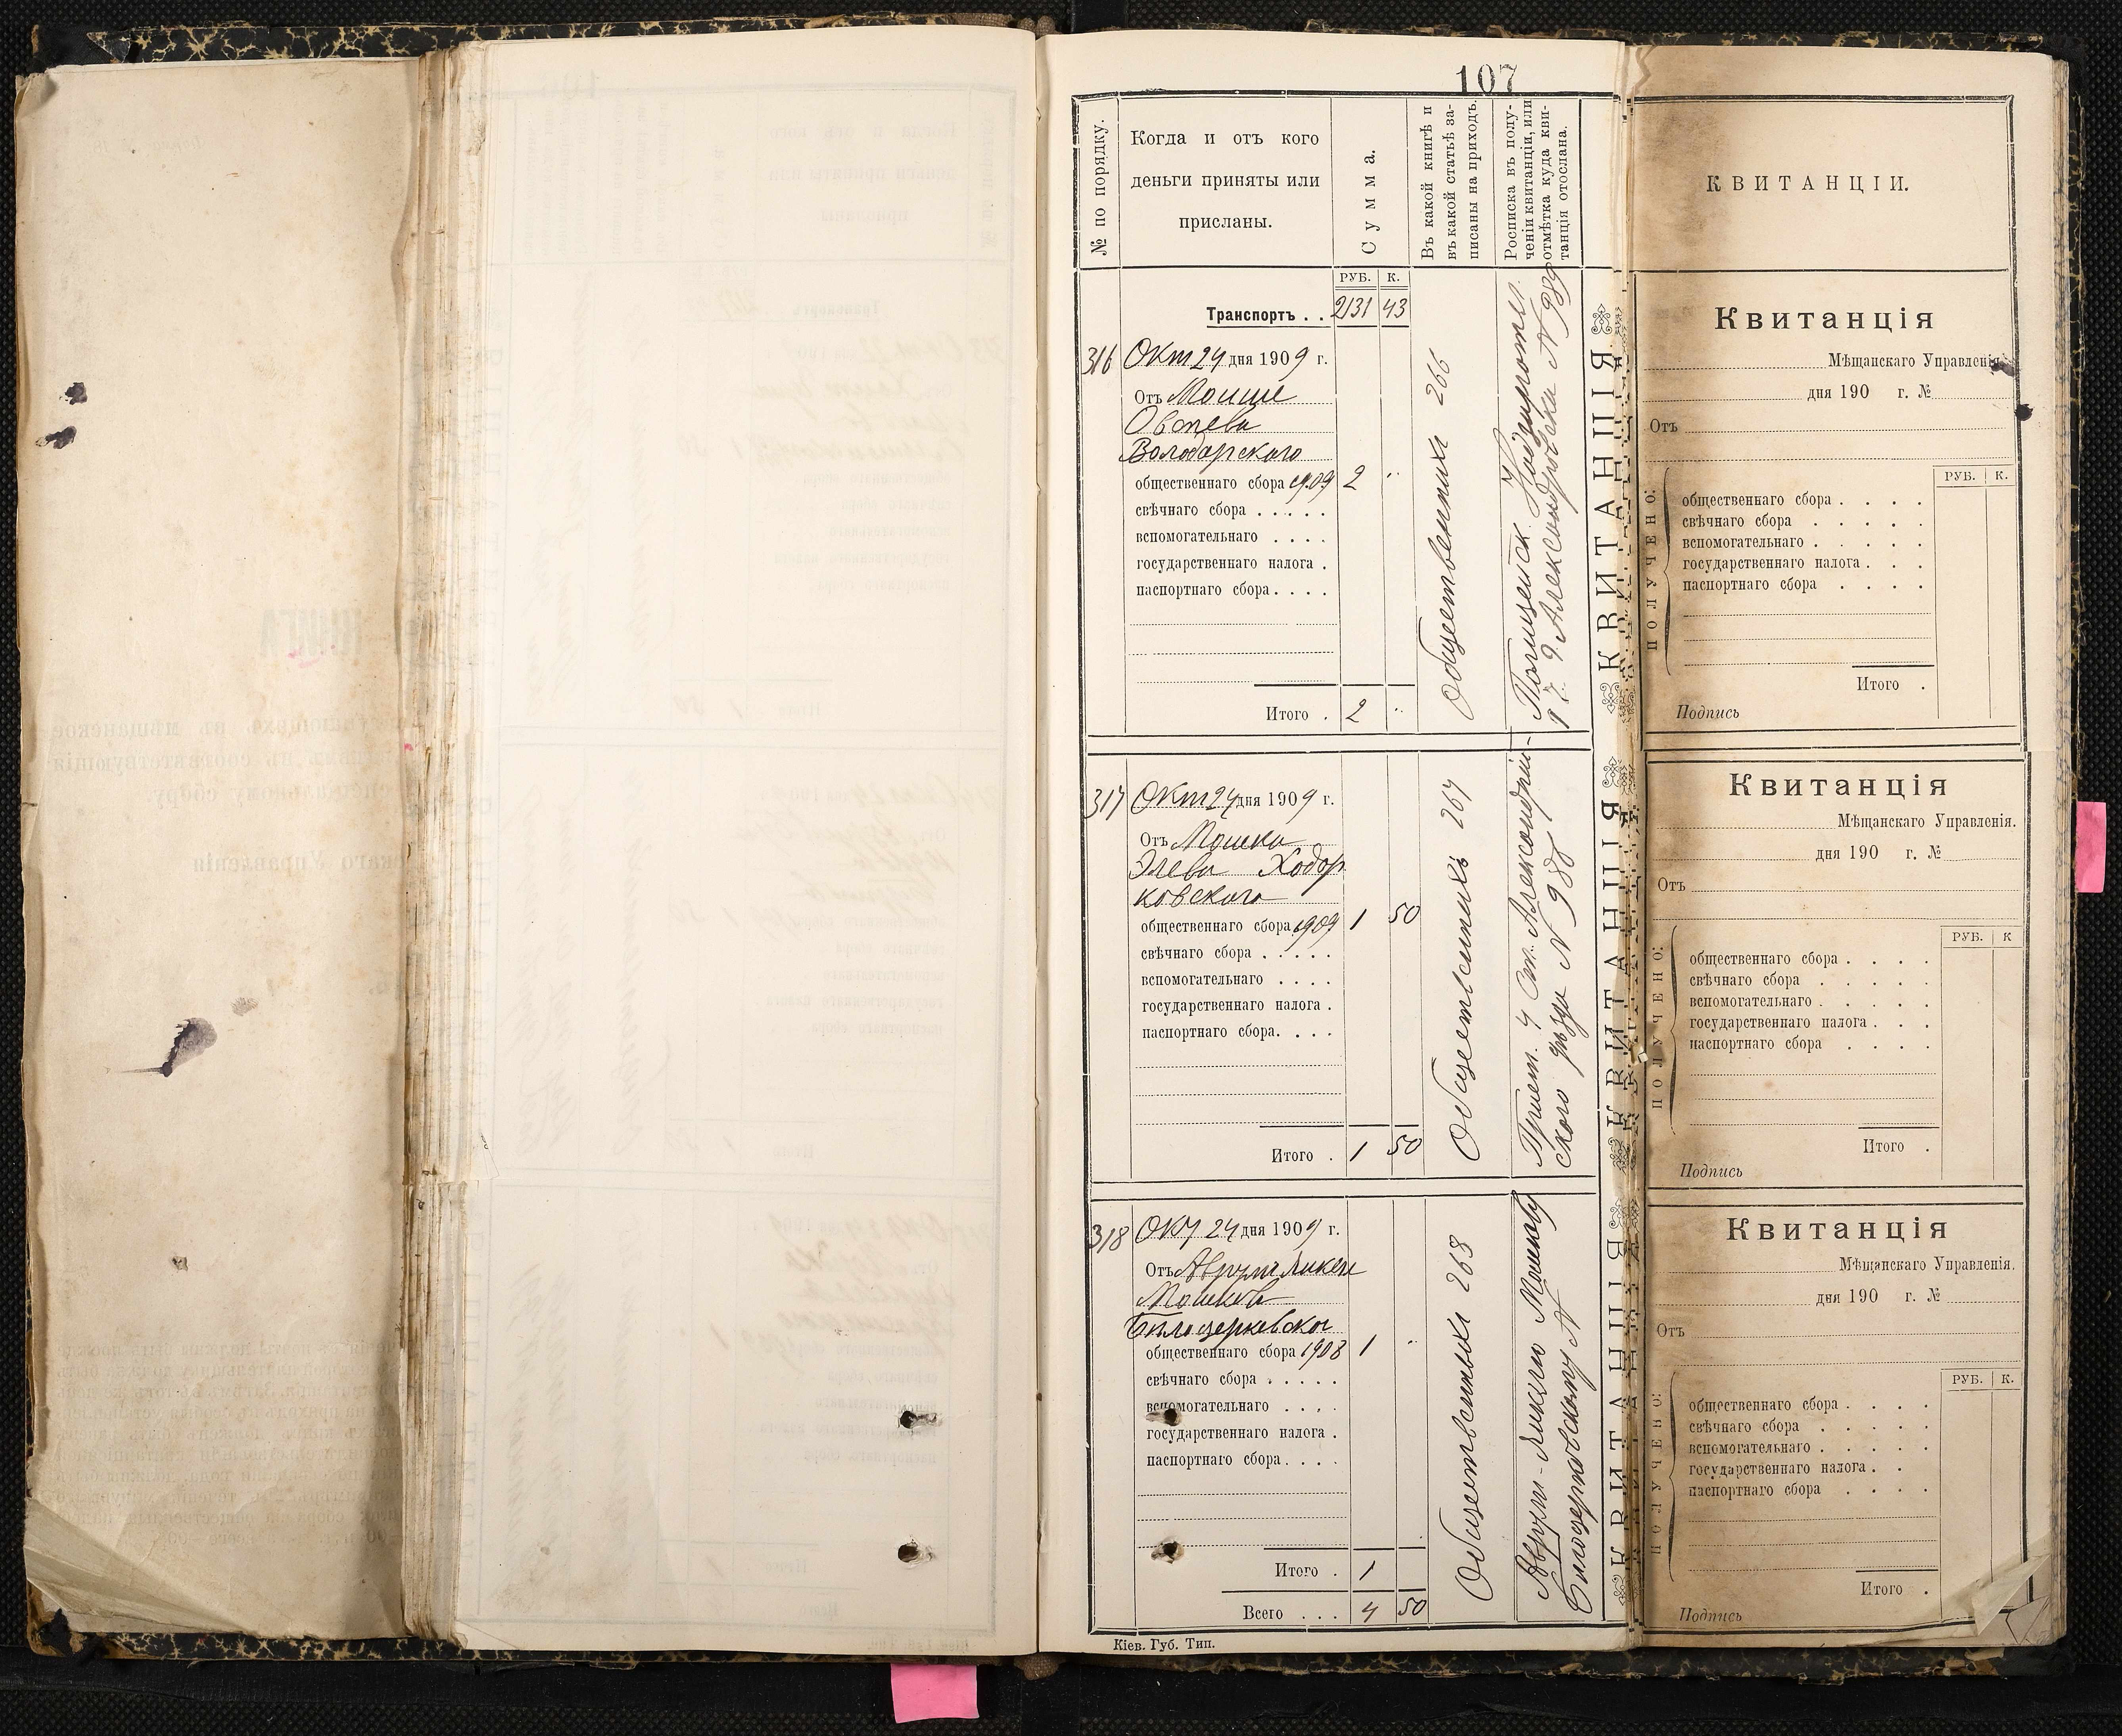 107
№ по порядку.
Когда и отъ кого
деньги приняты или
присланы.
Сумма.
Въ какой книгѣ и
въ какой статьѣ за-
писаны на приходъ.
Росписка въ полу-
ченіи квитанціи, или
отмѣтка куда кви-
танція отослана.
РУБ. К.
Транспортъ . . 2131 43
316 Окт 24 дня 1909 г.
Отъ Моише
Овсѣева
Володарского
общественнаго сбора 1909 2 "
свѣчнаго сбора . . . . .
вспомогательнаго . . . .
государственнаго налога .
паспортнаго сбора . . . .
Итого . 2 "
Общественныхъ 266
Полицейск.
9 7 9 Александровска № 989
317 Окт 24 дня 1909 г.
Отъ Мошка
Элева Ходор
ковского
общественнаго сбора 1909 1 50
свѣчнаго сбора . . . . .
вспомогательнаго . . . .
государственнаго налога .
паспортнаго сбора. . . .
Итого . 1 50
Общественныхъ 267
Прист. 4 Ст. Александрій-
ского уѣзда № 986
318 Окт 24 дня 1909 г.
Отъ Аврум Микеля
Мошков
Бѣлоцерковског
общественнаго сбора 1908 1 "
свѣчнаго сбора . . . . .
вспомогательнаго . . . .
государственнаго налога .
паспортнаго сбора . . . .
Итого . 1
Всего . . . 4 50
Общественныхъ 268
Аврум- Мошкову
Бѣлоцерковскому №
Кіев. Губ. Тип.
КВИТАНЦІЯ
КВИТАНЦІЯ
КВИТАНЦІЯ
КВИТАНЦІИ.
Квитанція
Мѣщанскаго Управленія.
дня 190 г. №
Отъ
РУБ. К.
ПОЛУЧЕНО:
общественнаго сбора . . . .
свѣчнаго сбора . . . . .
вспомогательнаго . . . . .
государственнаго налога . . .
паспортнаго сбора . . . .
Итого .
Подпись
Квитанція
Мѣщанскаго Управленія.
дня 190 г. №
Отъ
РУБ. К
ПОЛУЧЕНО:
общественнаго сбора . . . .
свѣчнаго сбора . . . . .
вспомогательнаго . . . . .
государственнаго налога . . .
паспортнаго сбора . . . .
Итого .
Подпись
Квитанція
Мѣщанскаго Управленія.
дня 190 г. №
Отъ
РУБ. К.
ПОЛУЧЕНО:
общественнаго сбора . . . .
свѣчнаго сбора . . . . .
вспомогательнаго . . . . .
государственнаго налога . .
паспортнаго сбора . . . .
Итого .
Подпись